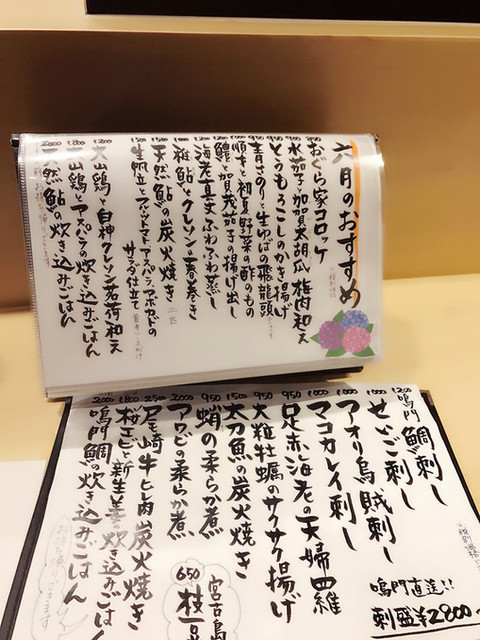 六月のおすすめ
おぐら家コロッケ
水茄子と加賀太胡瓜 梅肉和え
とうもろこしのかき揚げ
青さのりと生ゆばの飛龍頭
順才と初夏野菜の酢のもの
鱧と加賀茂茄子の揚げ出し
海老真丈ふわふわ蒸し
稚鮎とクレソンの春巻き
天然鮎の炭火焼き
生帆立とフルーツトマト、アスパラ、アボカドの
サラダ仕立て
大山鶏と白神クレソン茗荷和え
大山鶏とアスパラの炊き込みごはん
天然鮎の炊き込みごはん
1200
鳴門 鯛刺し
1000
せいご刺し
1000
アオリ烏賊刺し
1000
マコカレイ刺し
950
足赤海老の天婦羅
950
大粒牡蠣のサクサク揚げ
1500
太刀魚の炭火焼き
950
蛸の柔らか煮
2000
アワビの柔らか煮
2500
尾崎牛ヒレ肉 炭火焼き
1800
桜エビと新生姜の炊き込みごはん
2000
鳴門鯛の炊き込みごはん
鳴門直送!!
刺盛¥2800〜
宮古島
枝豆
650